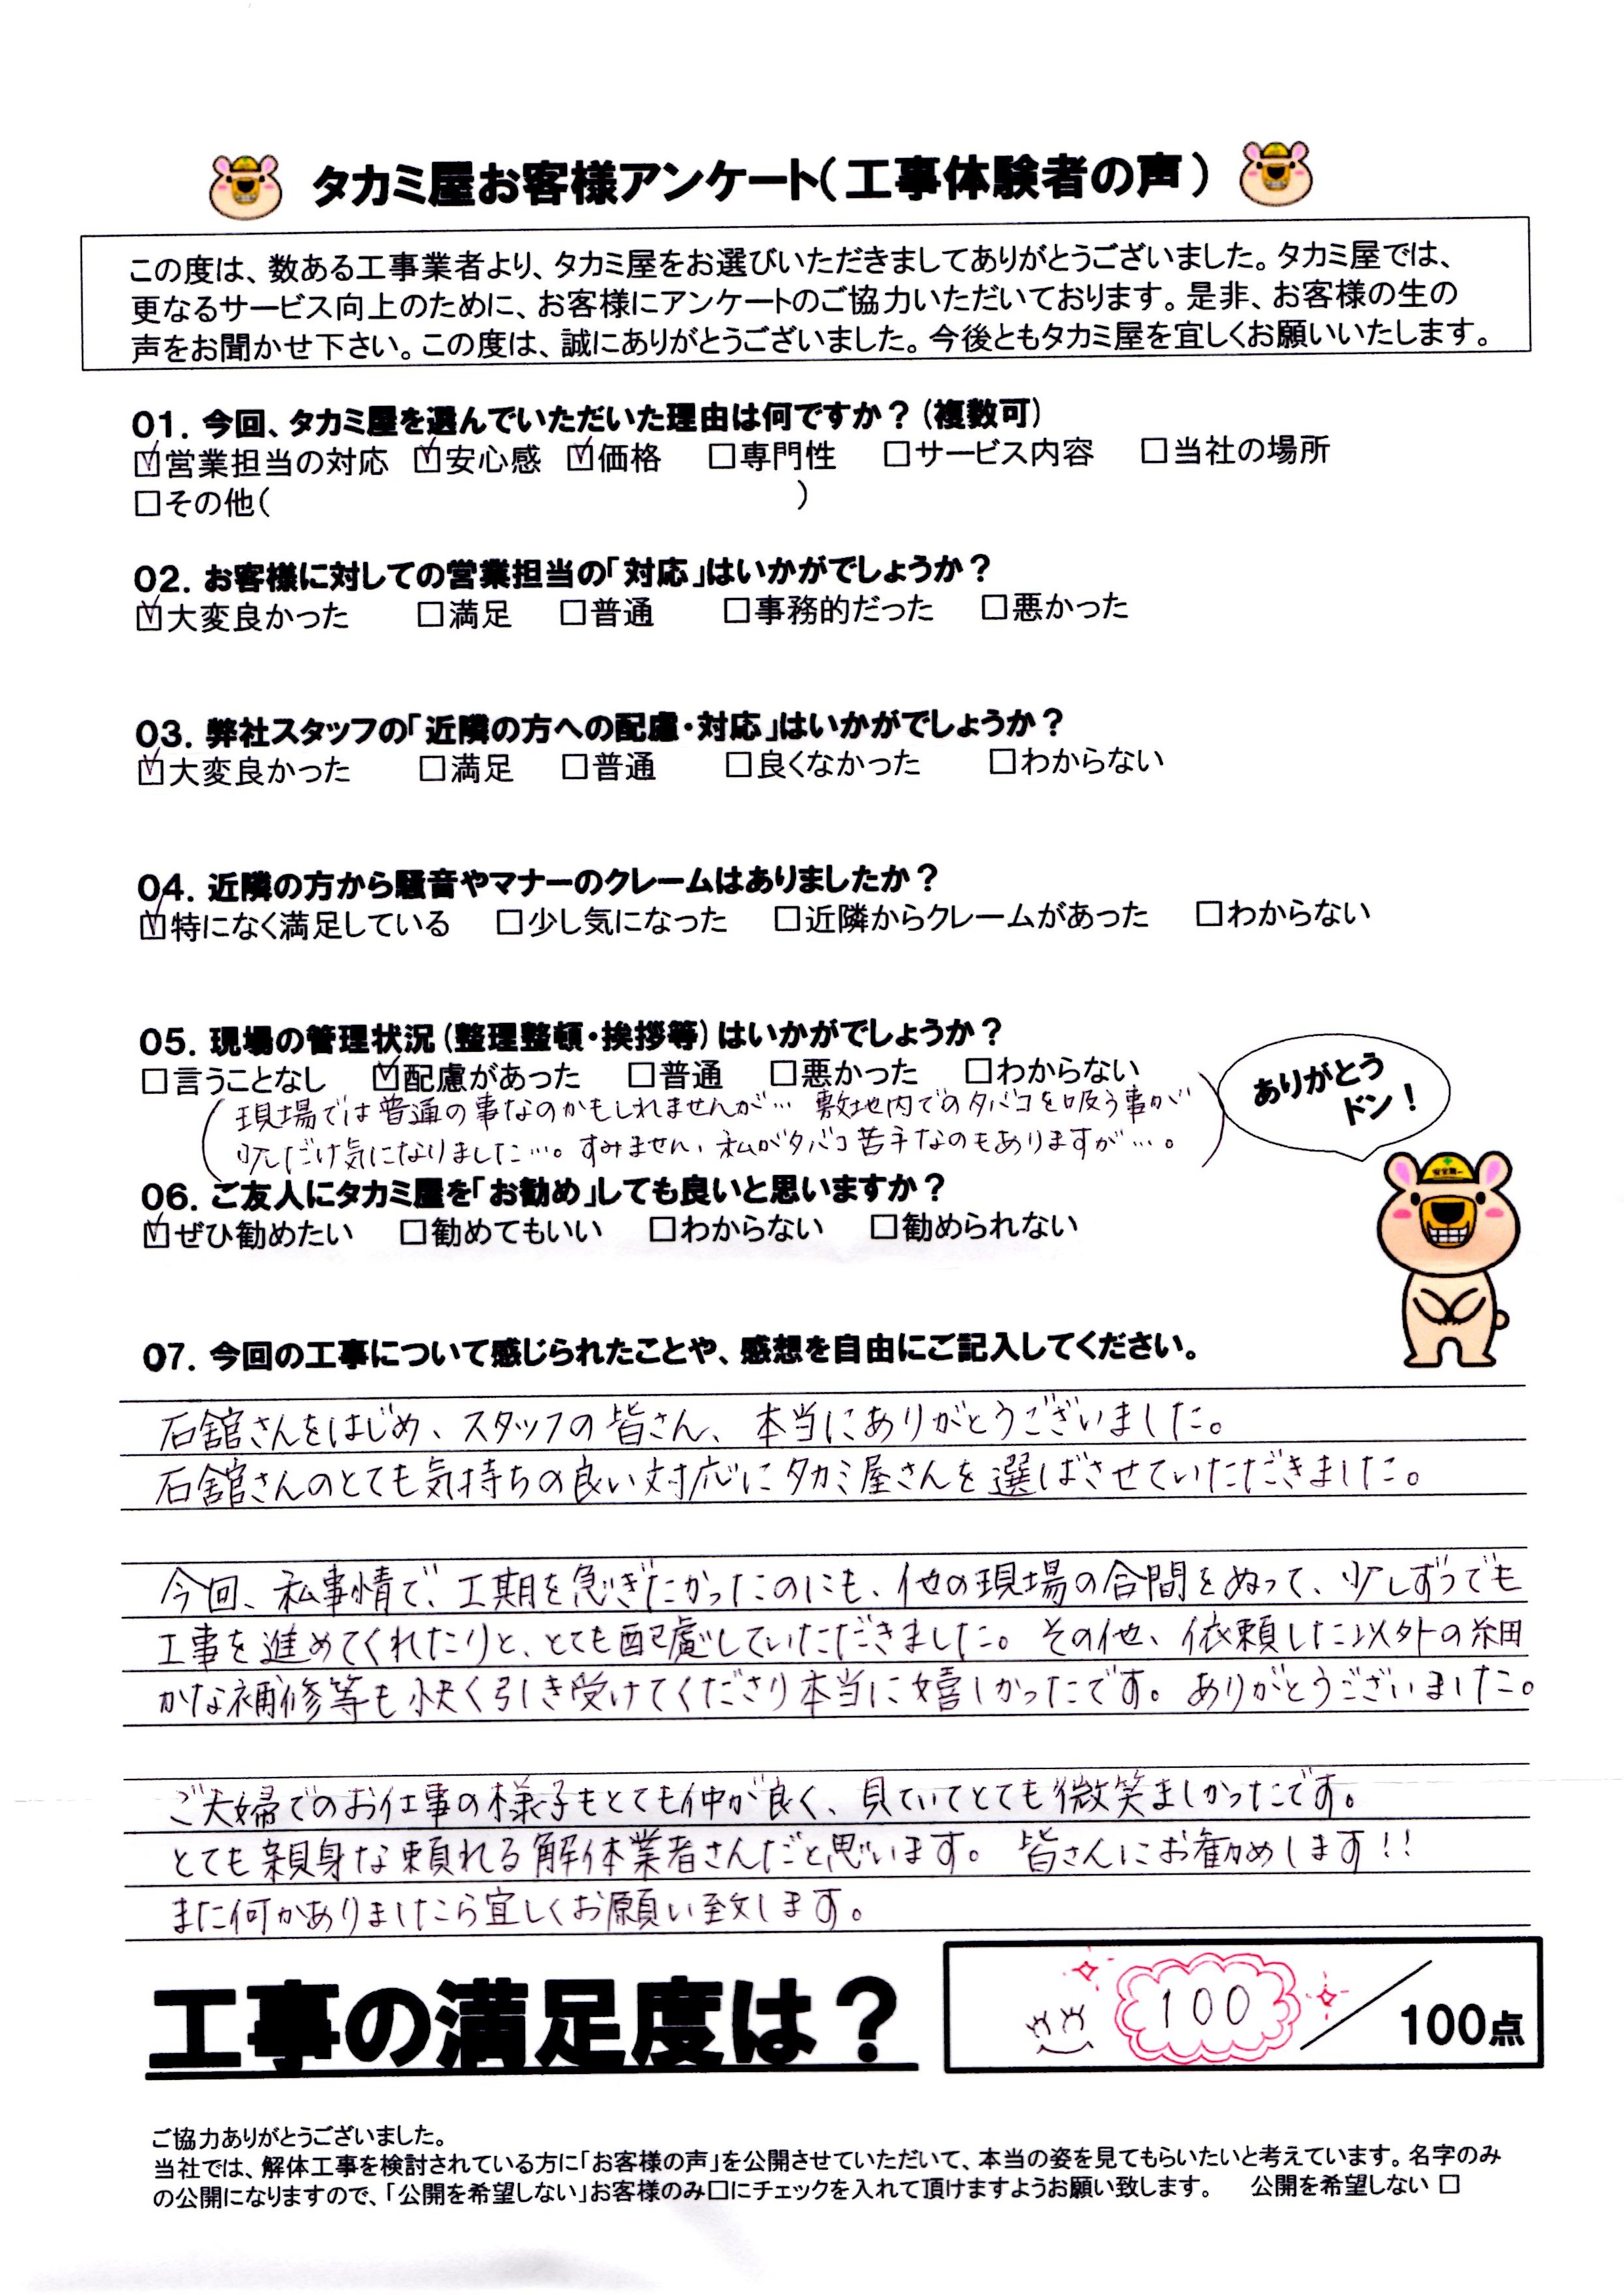 タカミ屋お客様アンケート（工事体験者の声）
この度は、数ある工事業者より、タカミ屋をお選びいただきましてありがとうございました。タカミ屋では、
更なるサービス向上のために、お客様にアンケートのご協力いただいております。是非、お客様の生の
声をお聞かせ下さい。この度は、誠にありがとうございました。今後ともタカミ屋を宜しくお願いいたします。
01. 今回、タカミ屋を選んでいただいた理由は何ですか？（複数可）
☑営業担当の対応 ☑安心感 ☑価格 □専門性 □サービス内容 □当社の場所
□その他（ ）
02. お客様に対しての営業担当の「対応」はいかがでしょうか？
☑大変良かった □満足 □普通 □事務的だった □悪かった
03. 弊社スタッフの「近隣の方への配慮・対応」はいかがでしょうか？
☑大変良かった □満足 □普通 □良くなかった □わからない
04. 近隣の方から騒音やマナーのクレームはありましたか？
☑特になく満足している □少し気になった □近隣からクレームがあった □わからない
05. 現場の管理状況（整理整頓・挨拶等）はいかがでしょうか？
□言うことなし ☑配慮があった □普通 □悪かった □わからない
（現場では普通の事なのかもしれませんが…敷地内でのタバコを吸う事が
少しだけ気になりました…。すみません、私がタバコ苦手なのもありますが…。）
ありがとう
ドン！
安全第一
06. ご友人にタカミ屋を「お勧め」しても良いと思いますか？
☑ぜひ勧めたい □勧めてもいい □わからない □勧められない
07. 今回の工事について感じられたことや、感想を自由にご記入してください。
石舘さんをはじめ、スタッフの皆さん、本当にありがとうございました。
石舘さんのとても気持ちの良い対応にタカミ屋さんを選ばさせていただきました。
今回、私事情で、工期を急ぎたかったのにも、他の現場の合間をぬって、少しずつでも
工事を進めてくれたりと、とても配慮していただきました。その他、依頼した以外の細
かな補修等も快く引き受けてくださり本当に嬉しかったです。ありがとうございました。
ご夫婦でのお仕事の様子もとても仲が良く、見ていてとても微笑ましかったです。
とても親身な頼れる解体業者さんだと思います。 皆さんにお勧めします！！
また何かありましたら宜しくお願い致します。
工事の満足度は？ 100／100点
ご協力ありがとうございました。
当社では、解体工事を検討されている方に「お客様の声」を公開させていただいて、本当の姿を見てもらいたいと考えています。名字のみ
の公開になりますので、「公開を希望しない」お客様のみ□にチェックを入れて頂けますようお願い致します。 公開を希望しない □